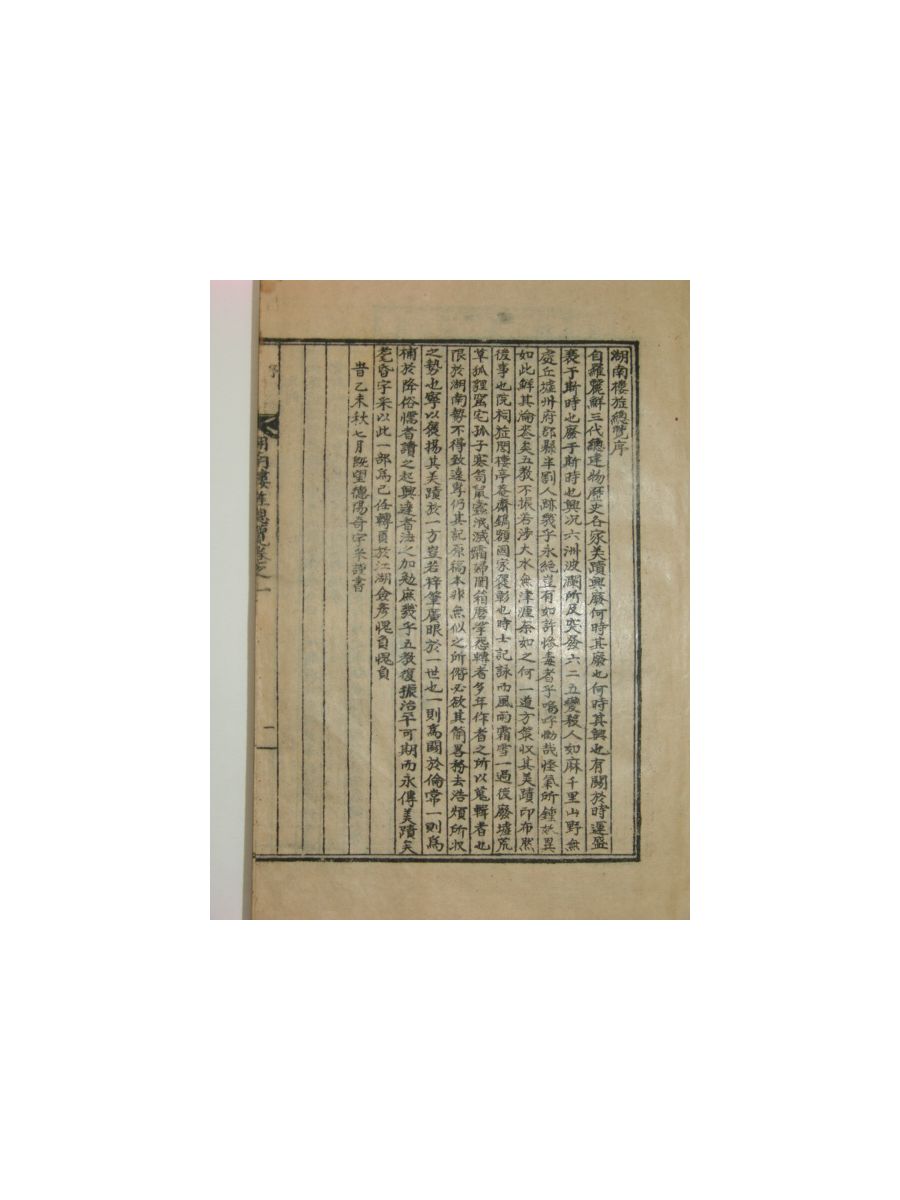 湖南樓旌總覽序
自羅麗鮮三代總建物歷史各家美蹟興廢何時其廢也何時其興也有關於時運盛
衰于斯時也廢于斯時也興況六洲波瀾所及突發六二五變殺人如麻千里山野無
處丘墟州府郡縣半割人跡幾乎永絕豈有如許慘毒者乎嗚呼慟哉怪氣所鍾妖異
如此鮮其倫矣五敎不振若涉大水無津涯奈如之何一道方袠收其美蹟印布然
後事也院祠旌閭樓亭菴齋鎬額國家褒彰也時士記詠而風雨霜雪一過後廢墟荒
草狐狸窟宅孤子寒笥鼠蠹泯滅霜婦閨箱磨掌忍轉者多年作者之所以蒐輯者也
限於湖南勢不得致遠專仍其記原稿本非無似之所偕必欲其簡畧務去浩煩所收
之勢也寧以褒揚其美蹟於一方豈若梓肇廣眼於一世也一則爲關於倫常一則爲
補於降俗懦者讀之起興達者法之加勉庶幾乎五敎復振治平可期而永傳美蹟矣
奇宇采以此一部爲己任轉頁於江湖僉彥愧負愧負
昔乙未秋七月旣望德陽奇宇采謹書
序
湖南樓旌總覽卷之一
二